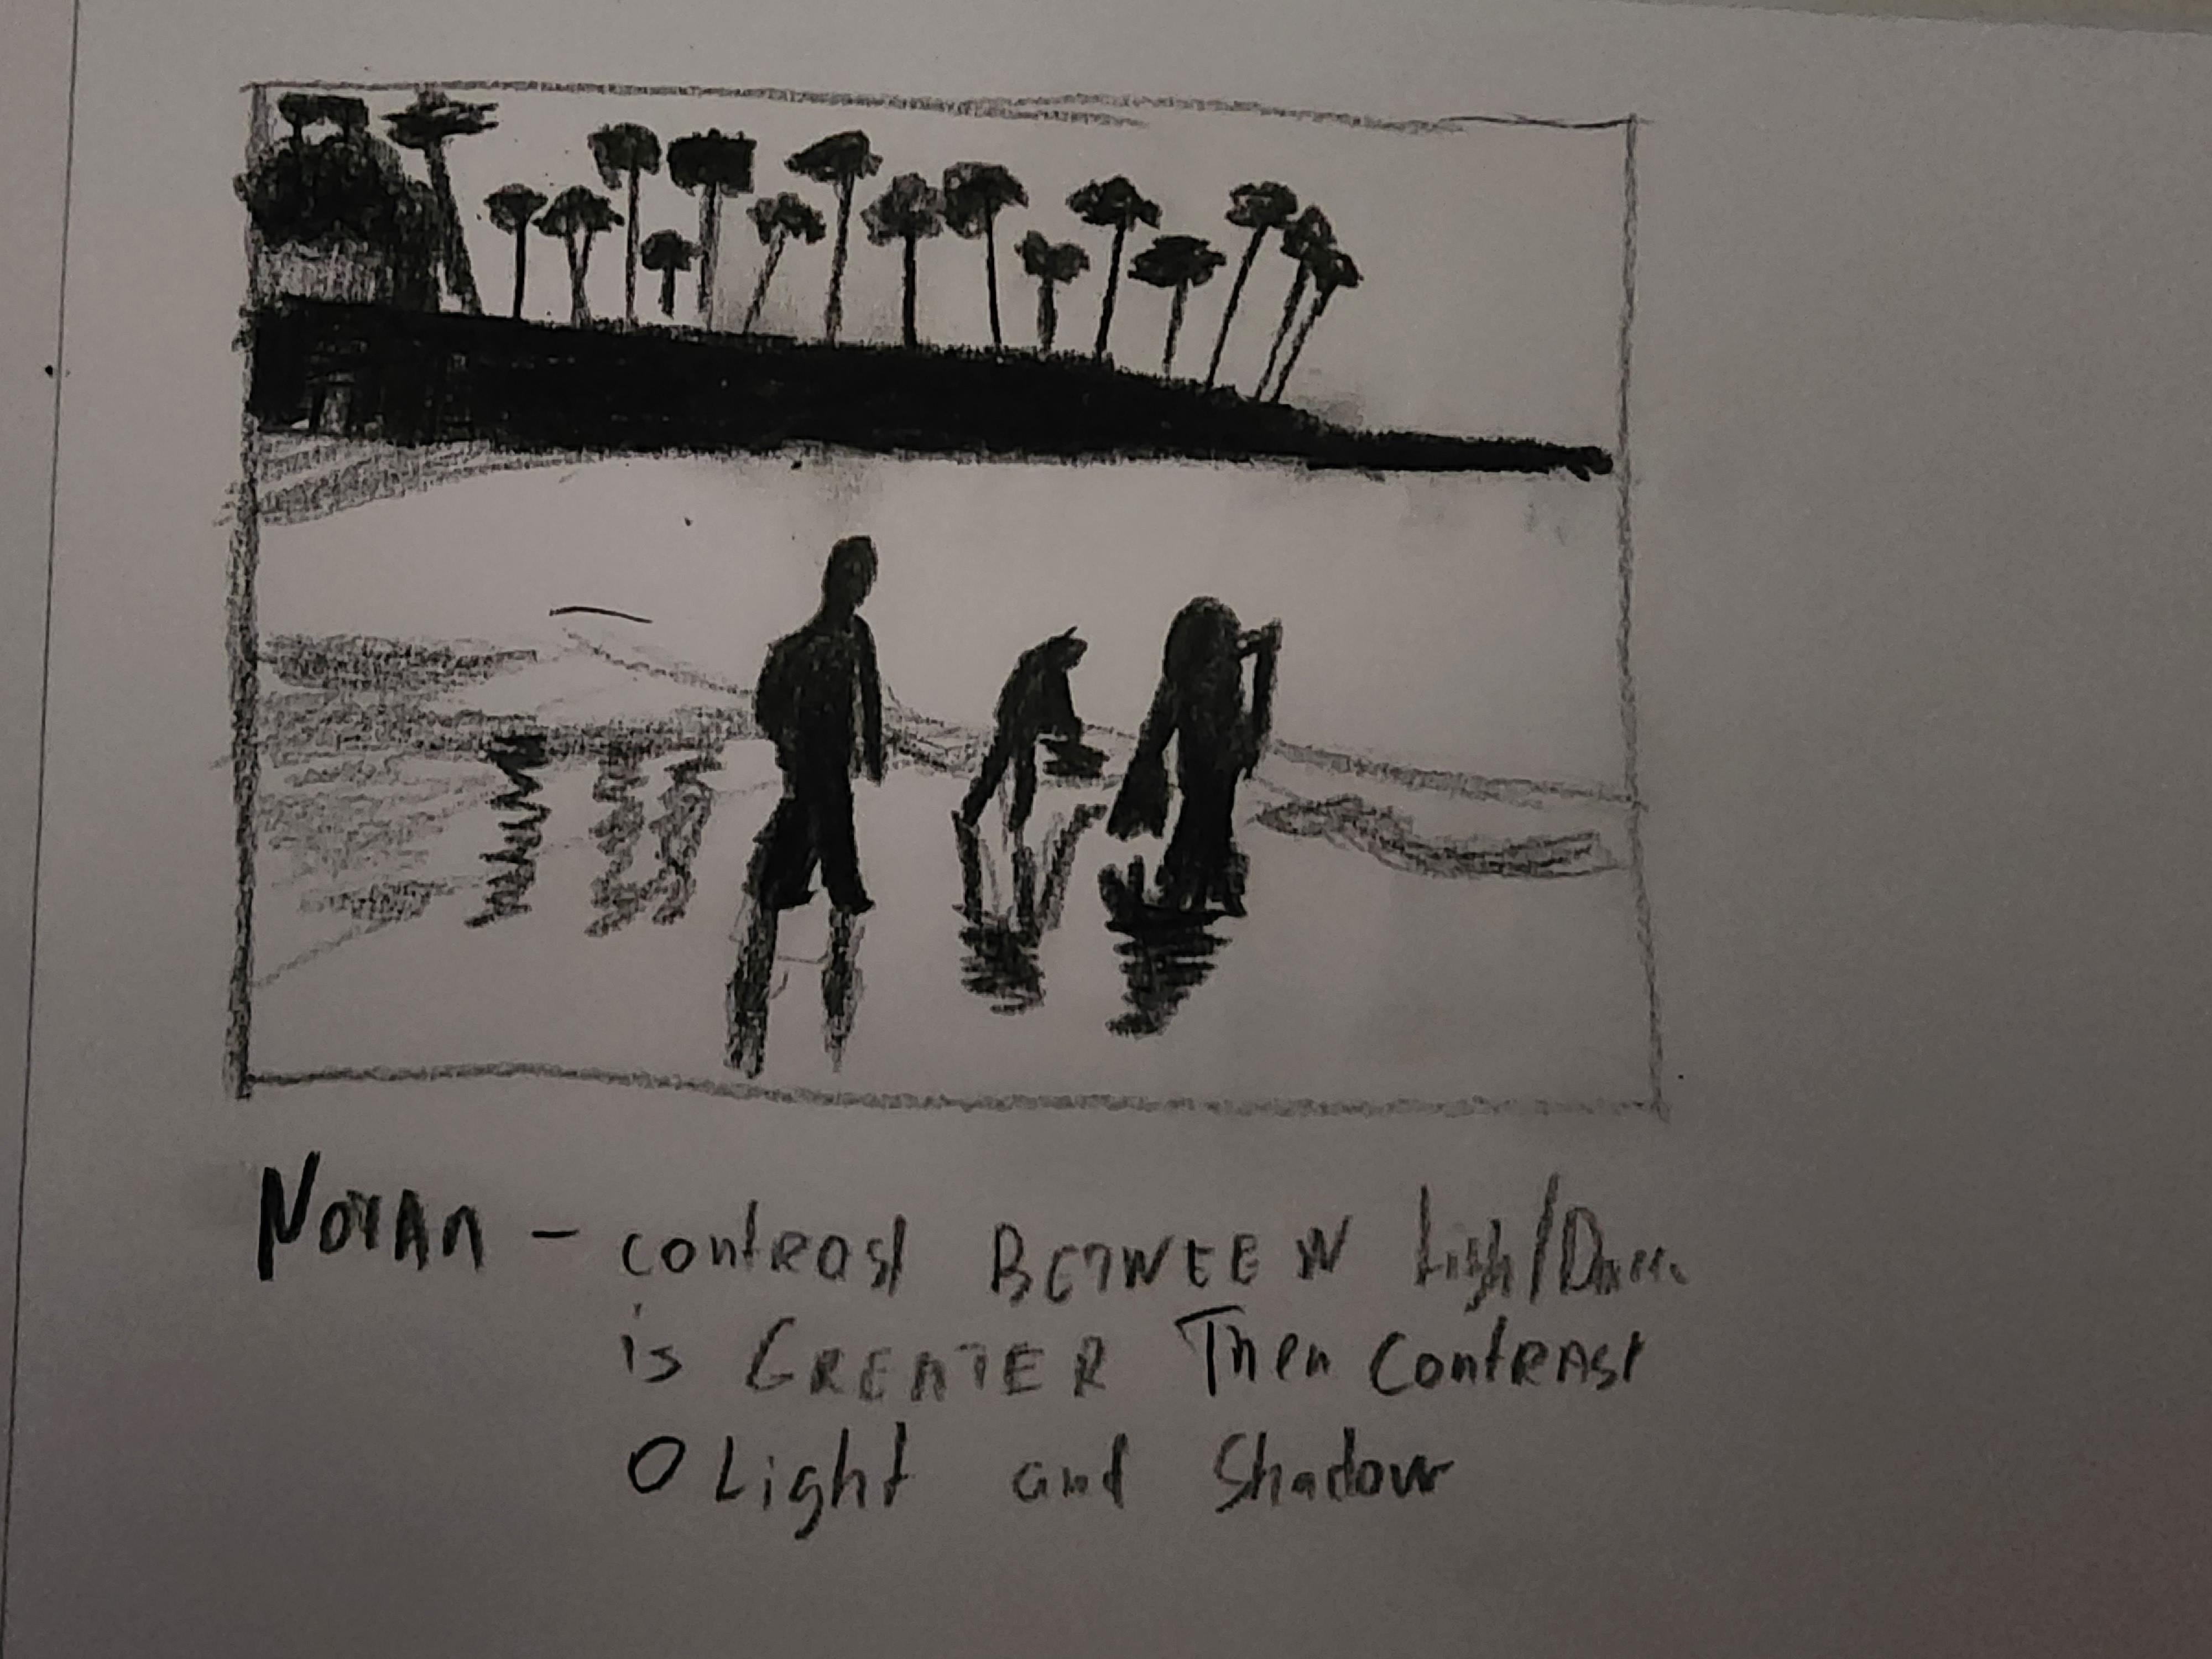 NOTAN - contrast BETWEEN Light/Dark
is GREATER Then Contrast
O Light and Shadow